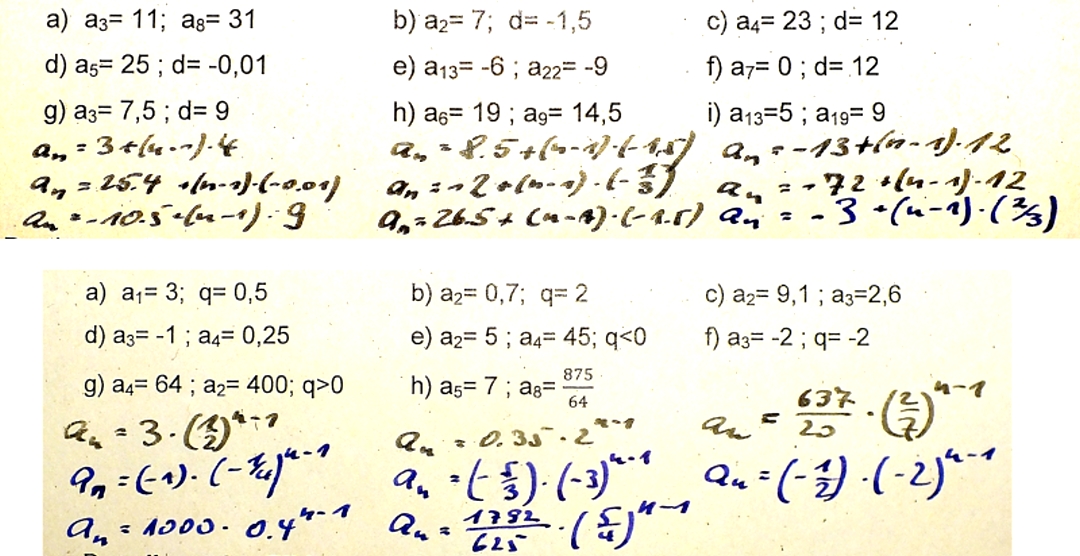 a) a₃= 11; a₈= 31 b) a₂= 7; d= -1,5 c) a₄= 23 ; d= 12
d) a₅= 25 ; d= -0,01 e) a₁₃= -6 ; a₂₂= -9 f) a₇= 0 ; d= 12
g) a₃= 7,5 ; d= 9 h) a₆= 19 ; a₉= 14,5 i) a₁₃=5 ; a₁₉= 9
aₙ = 3+(n-1)·4 aₙ = 8.5+(n-1)·(-1,5) aₙ = -13+(n-1)·12
aₙ = 25.4 +(n-1)·(-0.01) aₙ = -2+(n-1)·(-1/3) aₙ = -72+(n-1)·12
aₙ = -10.5+(n-1)·9 aₙ = 26.5+(n-1)·(-1.5) aₙ = -3+(n-1)·(2/3)
a) a₁= 3; q= 0,5 b) a₂= 0,7; q= 2 c) a₂= 9,1 ; a₃=2,6
d) a₃= -1 ; a₄= 0,25 e) a₂= 5 ; a₄= 45; q<0 f) a₃= -2 ; q= -2
g) a₄= 64 ; a₂= 400; q>0 h) a₅= 7 ; a₈= 875/64
aₙ = 3·(1/2)ⁿ⁻¹ aₙ = 0.35·2ⁿ⁻¹ aₙ = 637/20·(2/7)ⁿ⁻¹
aₙ = (-1)·(-1/4)ⁿ⁻¹ aₙ = (-5/3)·(-3)ⁿ⁻¹ aₙ = (-1/2)·(-2)ⁿ⁻¹
aₙ = 1000·0.4ⁿ⁻¹ aₙ = 1792/625·(5/4)ⁿ⁻¹